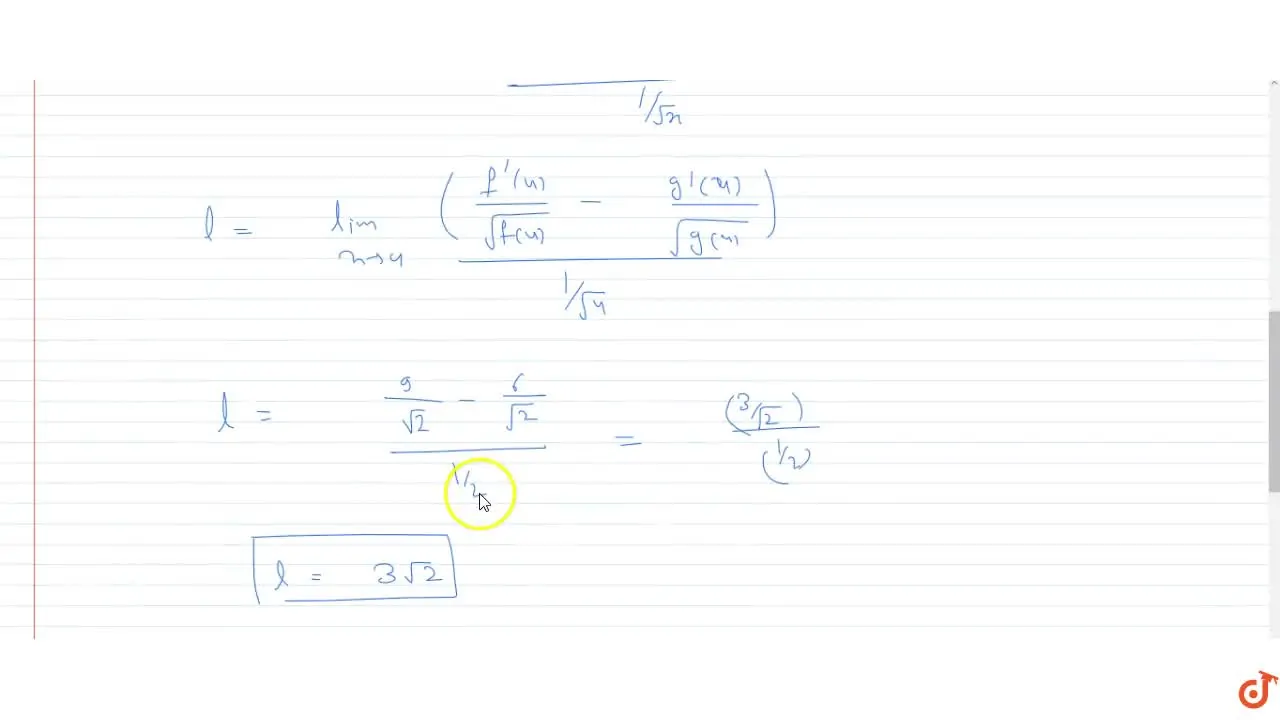 1/√x
l = lim x→4 ( f'(4)/√f(4) − g'(4)/√g(4) ) / 1/√4
l = (9/√2 − 6/√2) / 1/2 = (3/√2) / (1/2)
l = 3√2